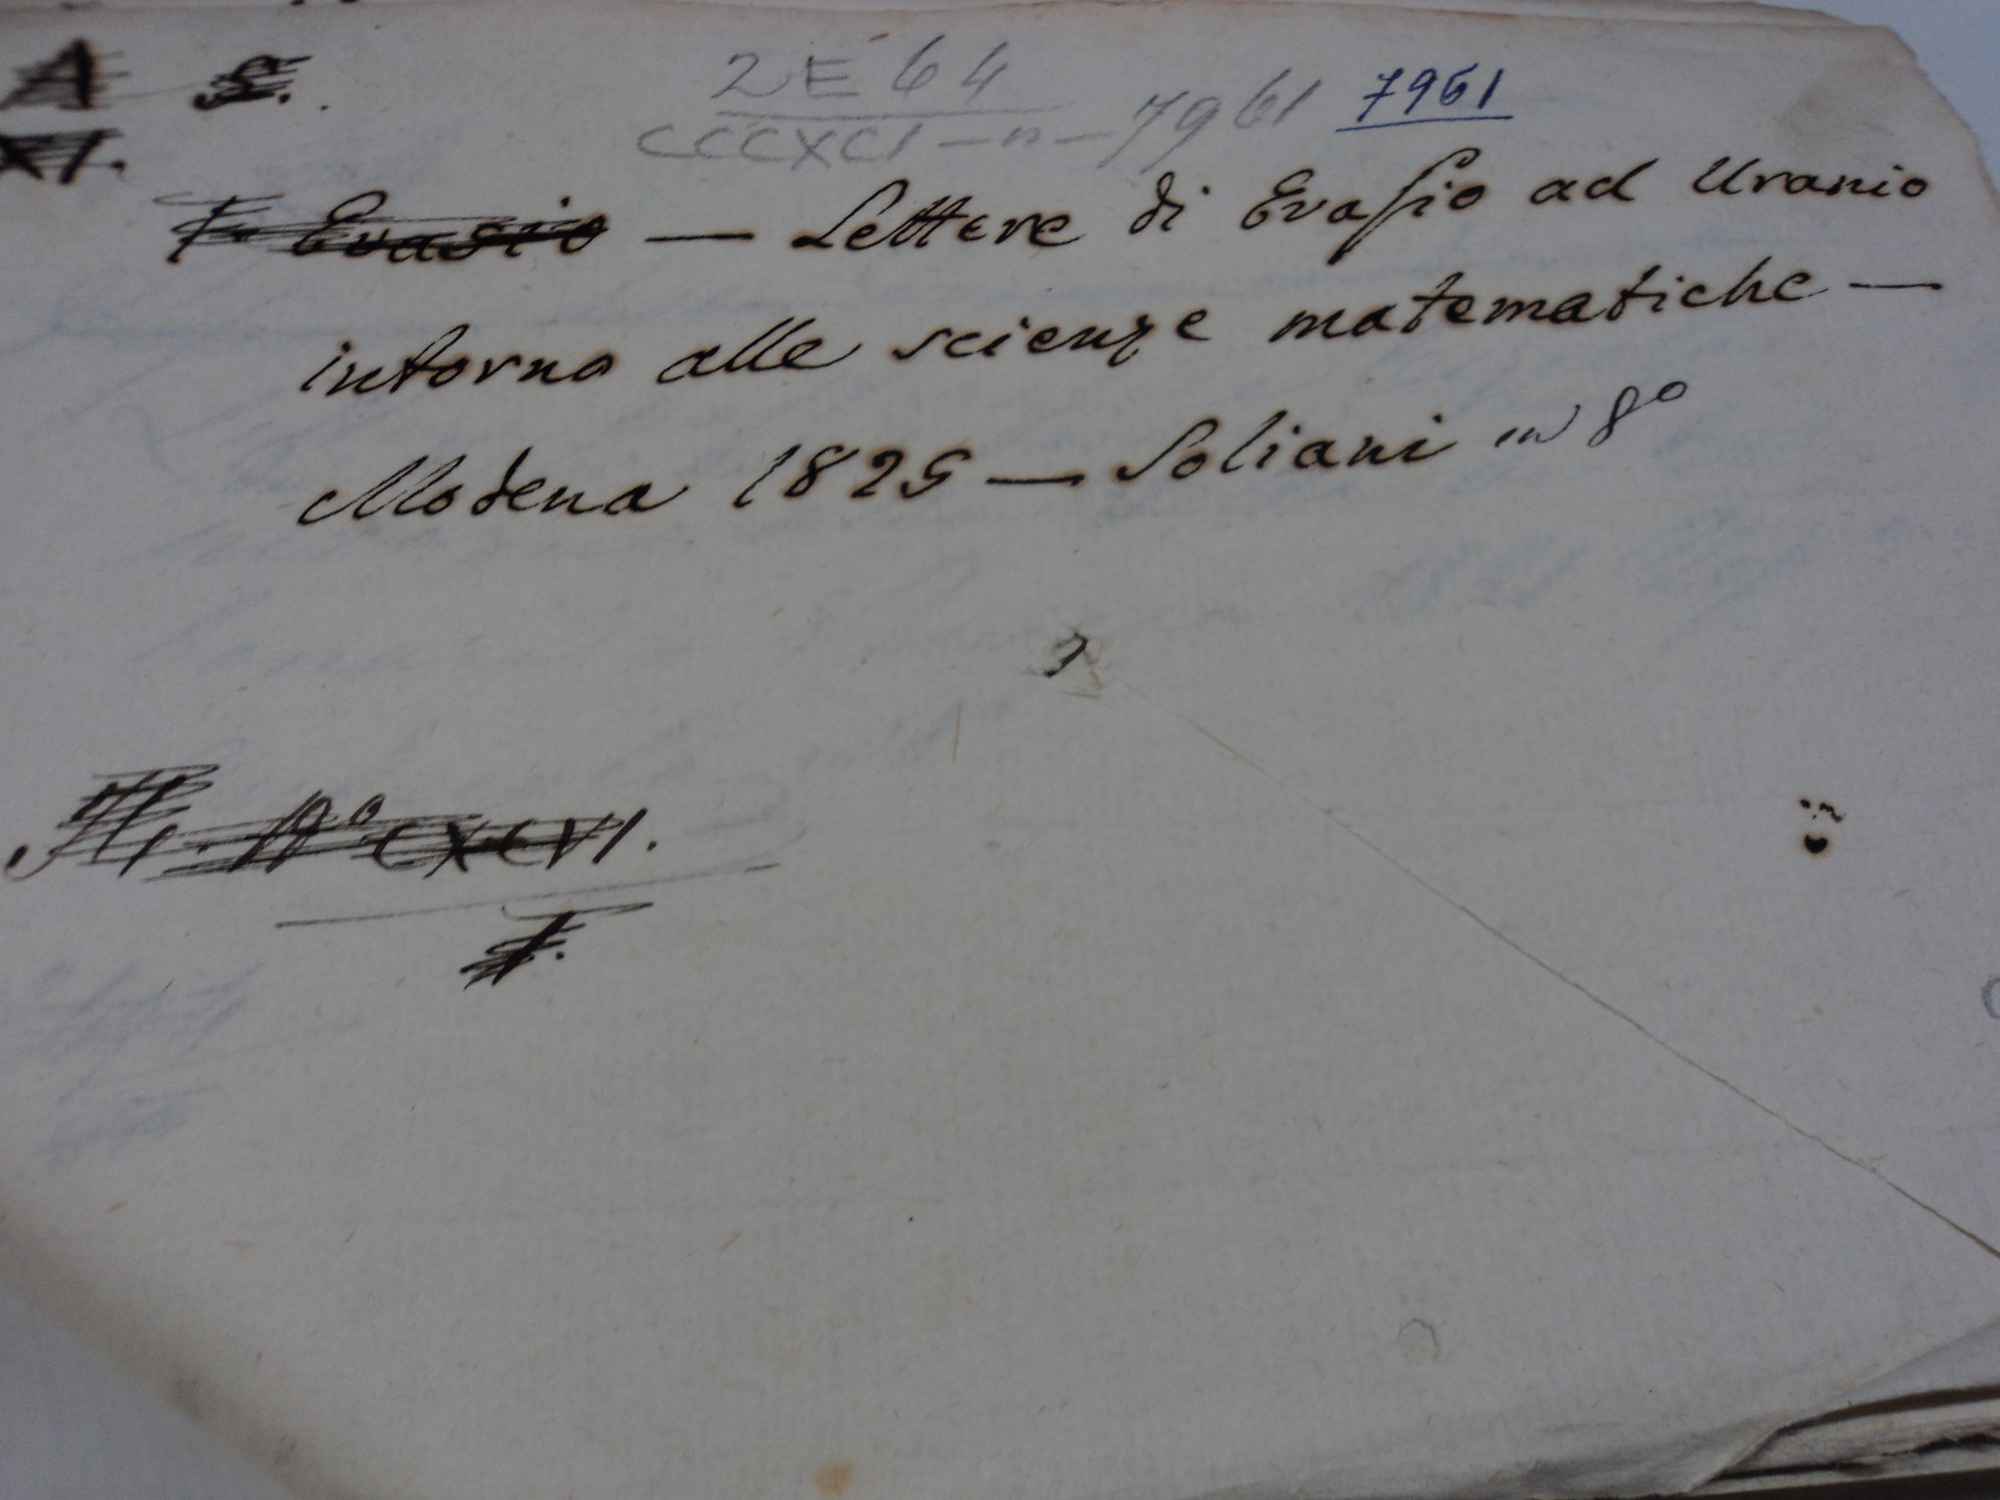 A S.
XI.
2E 64
CCCXCI - n - 7961 7961
F. Evasio — Lettere di Evasio ad Uranio
intorno alle scienze matematiche —
Modena 1825 — Soliani in 8º
Nº CXCVI.